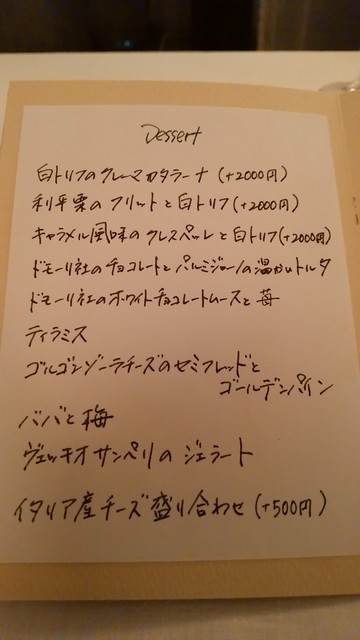 Dessert
白トリフのクレーマカタラーナ (+2000円)
利平栗のフリットと白トリフ(+2000円)
キャラメル風味のクレスペッレと白トリフ(+2000円)
ドモーリ社のチョコレートとパルミジャーノの温かいトルタ
ドモーリ社のホワイトチョコレートムースと苺
ティラミス
ゴルゴンゾーラチーズのセミフレッドと
ゴールデンパイン
ババと梅
ヴェッキオサンペリのジェラート
イタリア産チーズ盛り合わせ (+500円)